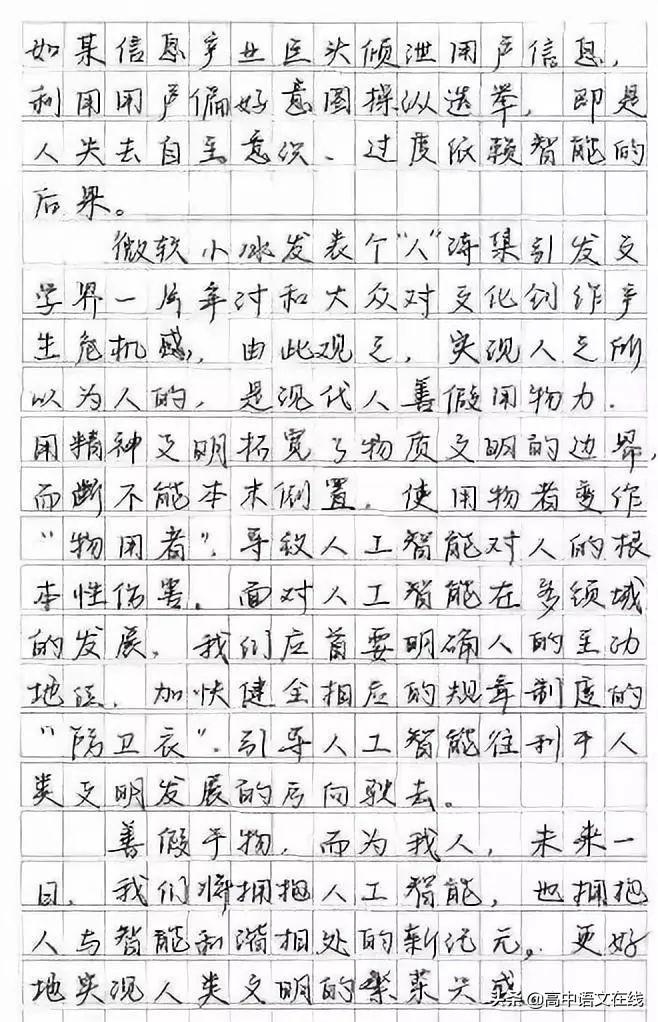 如某信息产业巨头倾泄用户信息，
利用用户偏好意图操纵选举，即是
人失去自主意识、过度依赖智能的
后果。
微软小冰发表个“人”诗集引发文
学界一片争讨和大众对文化创作产
生危机感，由此观之，实现人之所
以为人的，是现代人善假用物力．
用精神文明拓宽了物质文明的边界，
而断不能本末倒置．使用物者变作
“物用者”．导致人工智能对人的根
本性伤害．面对人工智能在多领域
的发展．我们应首要明确人的主动
地位．加快健全相应的规章制度的
“防卫衣”．引导人工智能往利于人
类文明发展的方向驶去。
善假于物，而为我人，未来一
日．我们将拥抱人工智能，也拥抱
人与智能和谐相处的新纪元。更好
地实现人类文明的
头条@高中语文在线